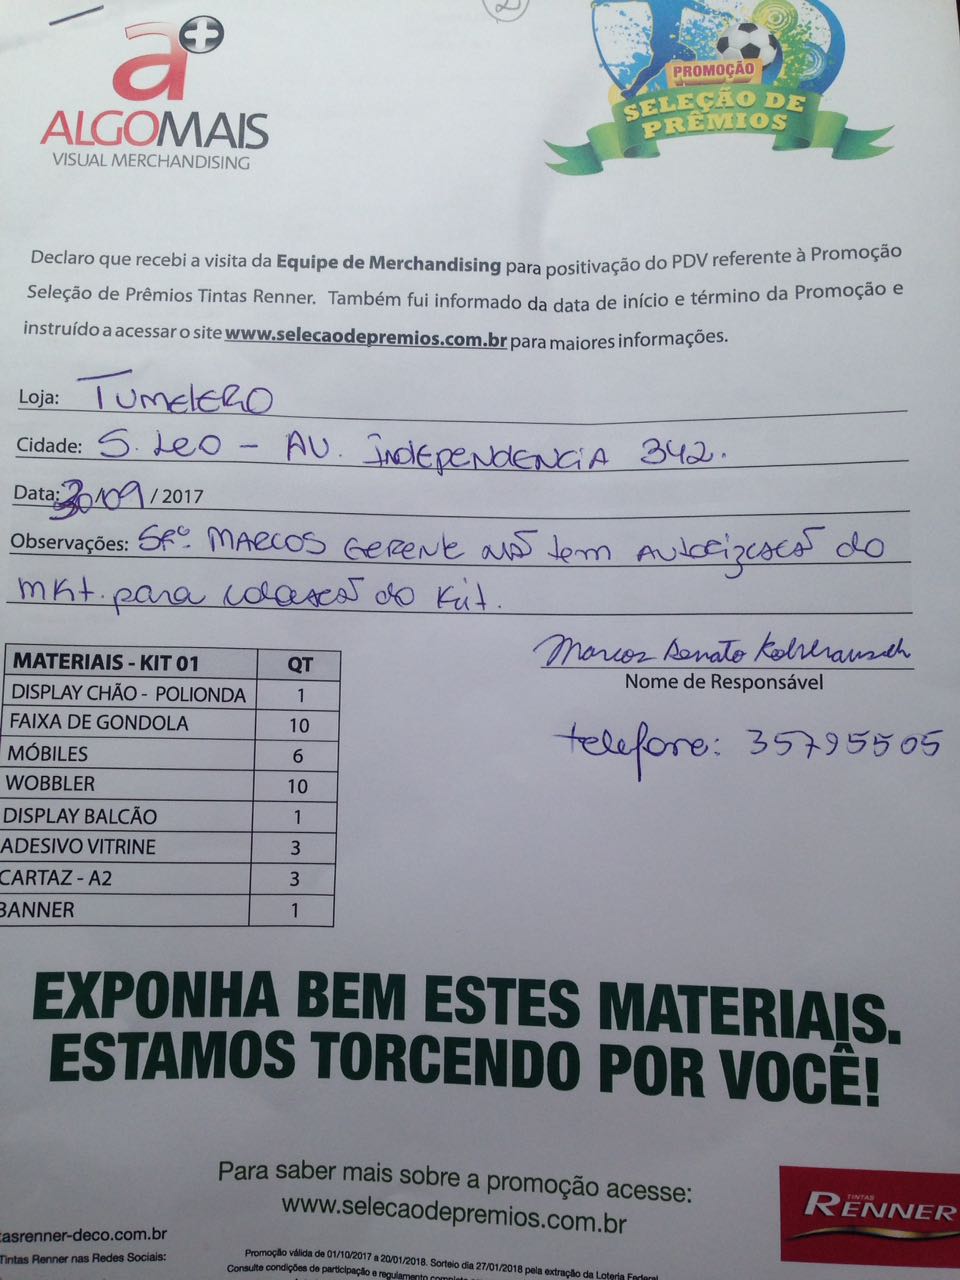 2
a+
ALGOMAIS
VISUAL MERCHANDISING
PROMOÇÃO
SELEÇÃO DE
PRÊMIOS
Declaro que recebi a visita da Equipe de Merchandising para positivação do PDV referente à Promoção
Seleção de Prêmios Tintas Renner. Também fui informado da data de início e término da Promoção e
instruído a acessar o site www.selecaodepremios.com.br para maiores informações.
Loja: TUMELERO
Cidade: S. LEO - AV. INDEPENDENCIA 342.
Data: 30/09 / 2017
Observações: SRº. MARCOS GERENTE NÃO tem AUTORIZAÇÃO do
MKt. para colocação do Kit.
Marcos Renato
Nome de Responsável
telefone: 35795505
MATERIAIS - KIT 01 QT
DISPLAY CHÃO - POLIONDA 1
FAIXA DE GONDOLA 10
MÓBILES 6
WOBBLER 10
DISPLAY BALCÃO 1
ADESIVO VITRINE 3
CARTAZ - A2 3
BANNER 1
EXPONHA BEM ESTES MATERIAIS.
ESTAMOS TORCENDO POR VOCÊ!
Para saber mais sobre a promoção acesse:
www.selecaodepremios.com.br
TINTAS
RENNER
tasrenner-deco.com.br
Tintas Renner nas Redes Sociais:
Promoção válida de 01/10/2017 a 20/01/2018. Sorteio dia 27/01/2018 pela extração da Loteria Federal
Consulte condições de participação e regulamento